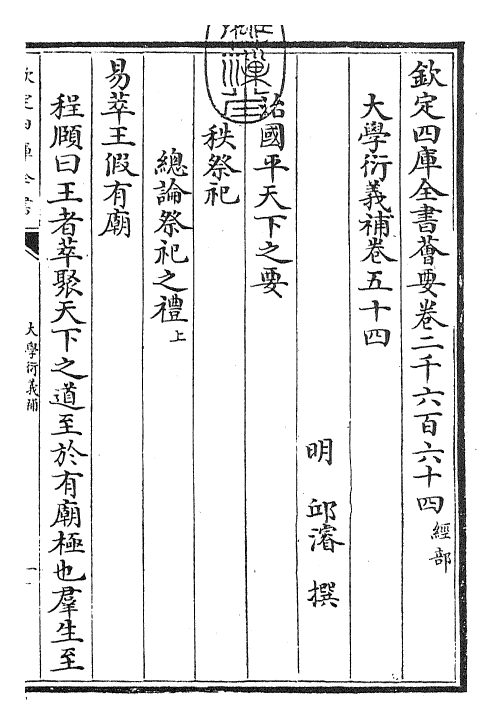 欽定四庫全書薈要卷二千六百六十四 經部
大學衍義補卷五十四
明 邱濬 撰
治國平天下之要
秩祭祀
總論祭祀之禮上
易萃王假有廟
程頤曰王者萃聚天下之道至於有廟極也羣生至
欽定四庫全書
大學衍義補
一